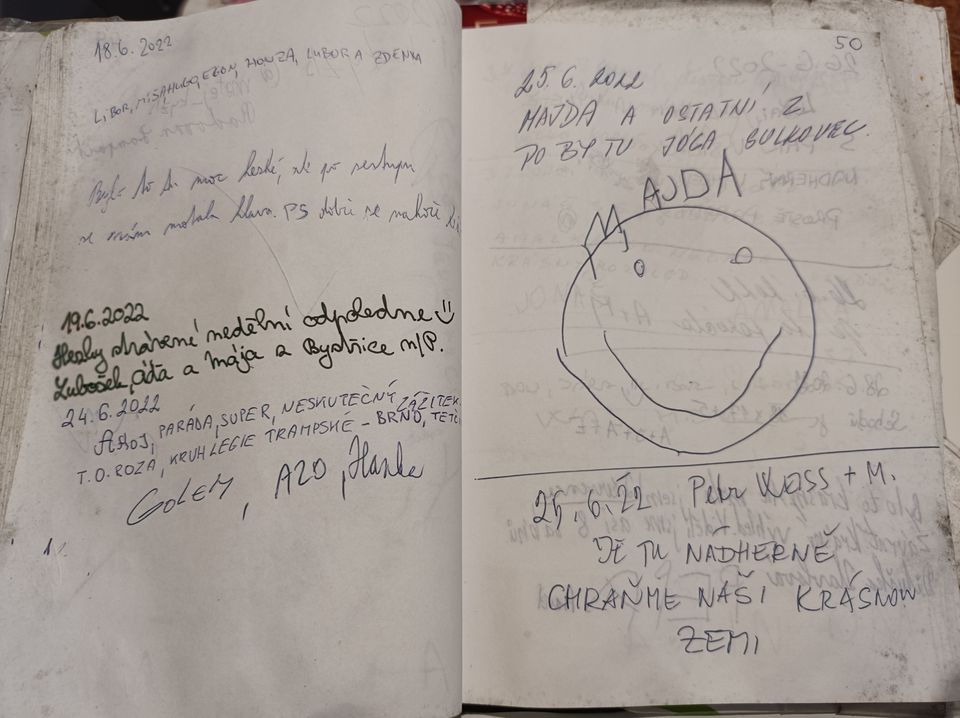 18.6.2022
LIBOR, MÍSA, HUGO, EGON, HONZA, LUBOR A ZDENKA
Bylo to tu moc hezké, ale po
se nám motala hlava. PS dobře se
19.6.2022
Hezky strávené nedělní odpoledne
Lubošek, Áťa a Mája z Bystřice n/P.
24.6.2022
AHOJ, PARÁDA, SUPER, NESKUTEČNÝ ZÁŽITEK.
T.O. ROZA, KRUH LEGIE TRAMPSKÉ – BRNO,
GOLEM, AZO, Hanka
50
25.6.2022
MAJDA A OSTATNÍ Z
POBYTU JÓGA SULKOVEC.
MAJDA
25.6.22 Petr + M.
JE TU NÁDHERNĚ
CHRAŇME NAŠI KRÁSNOU
ZEMI